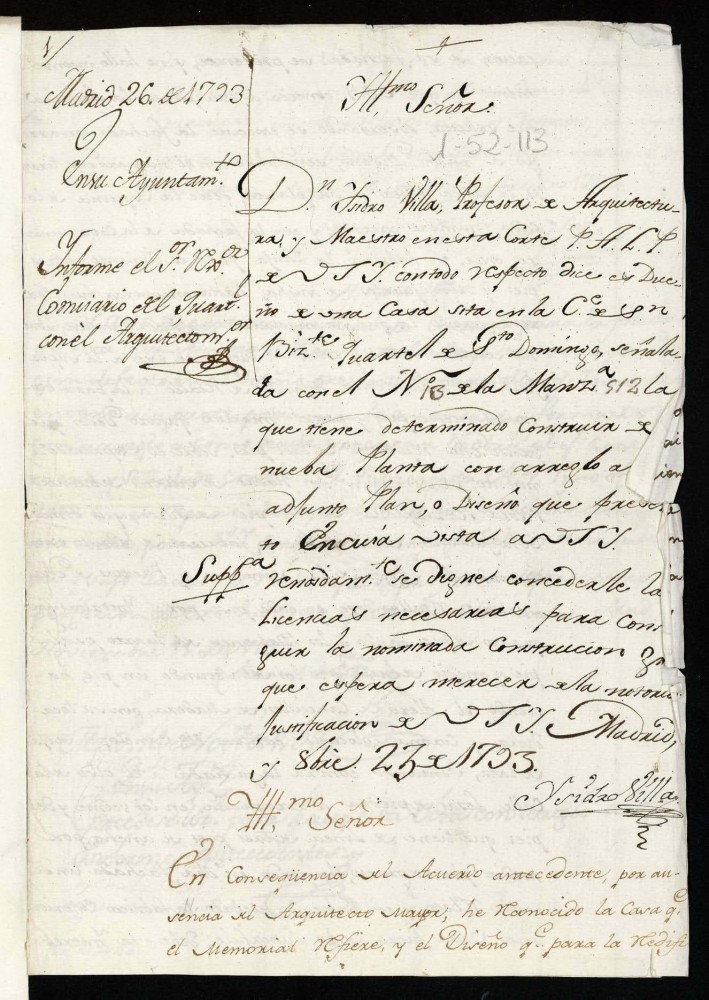 1/
Madrid 26. de 1793
En su Ayuntam.to
Informe el S.or Rex.or
Comisario del Quart.l
con el Arquitecto m.or
Yll.mo Señor.
1-52-113
D.n Isidro Villa, Profesor de Arquitectu-
ra, y Maestro en esta Corte P. A. L. P.
de V S Y. con todo respecto dice es Due-
ño de una Casa sita en la C.e de S.n
Biz.te Quartel de S.to Domingo, señala-
da con el N.o 13 de la Manz.a 512 la
que tiene determinado Construir de
nueba Planta con arreglo a
adjunto Plan, o Diseño que presen
to En cuia vista a V S Y.
Supp.ca rendidam.te se digne concederle la
Licencias necesarias para Cons
guir la nominada Construcion
que espera merecer de la notoria
Justificacion de V S Y. Madrid,
y 8bre 23 de 1793.
Ysidro Villa
Yll.mo Señor
En Conseqüencia del Acuerdo antecedente, por au-
sencia del Arquitecto Mayor, he Reconocido la Casa q.e
el Memorial Refiere, y el Diseño q.e para la Redifi